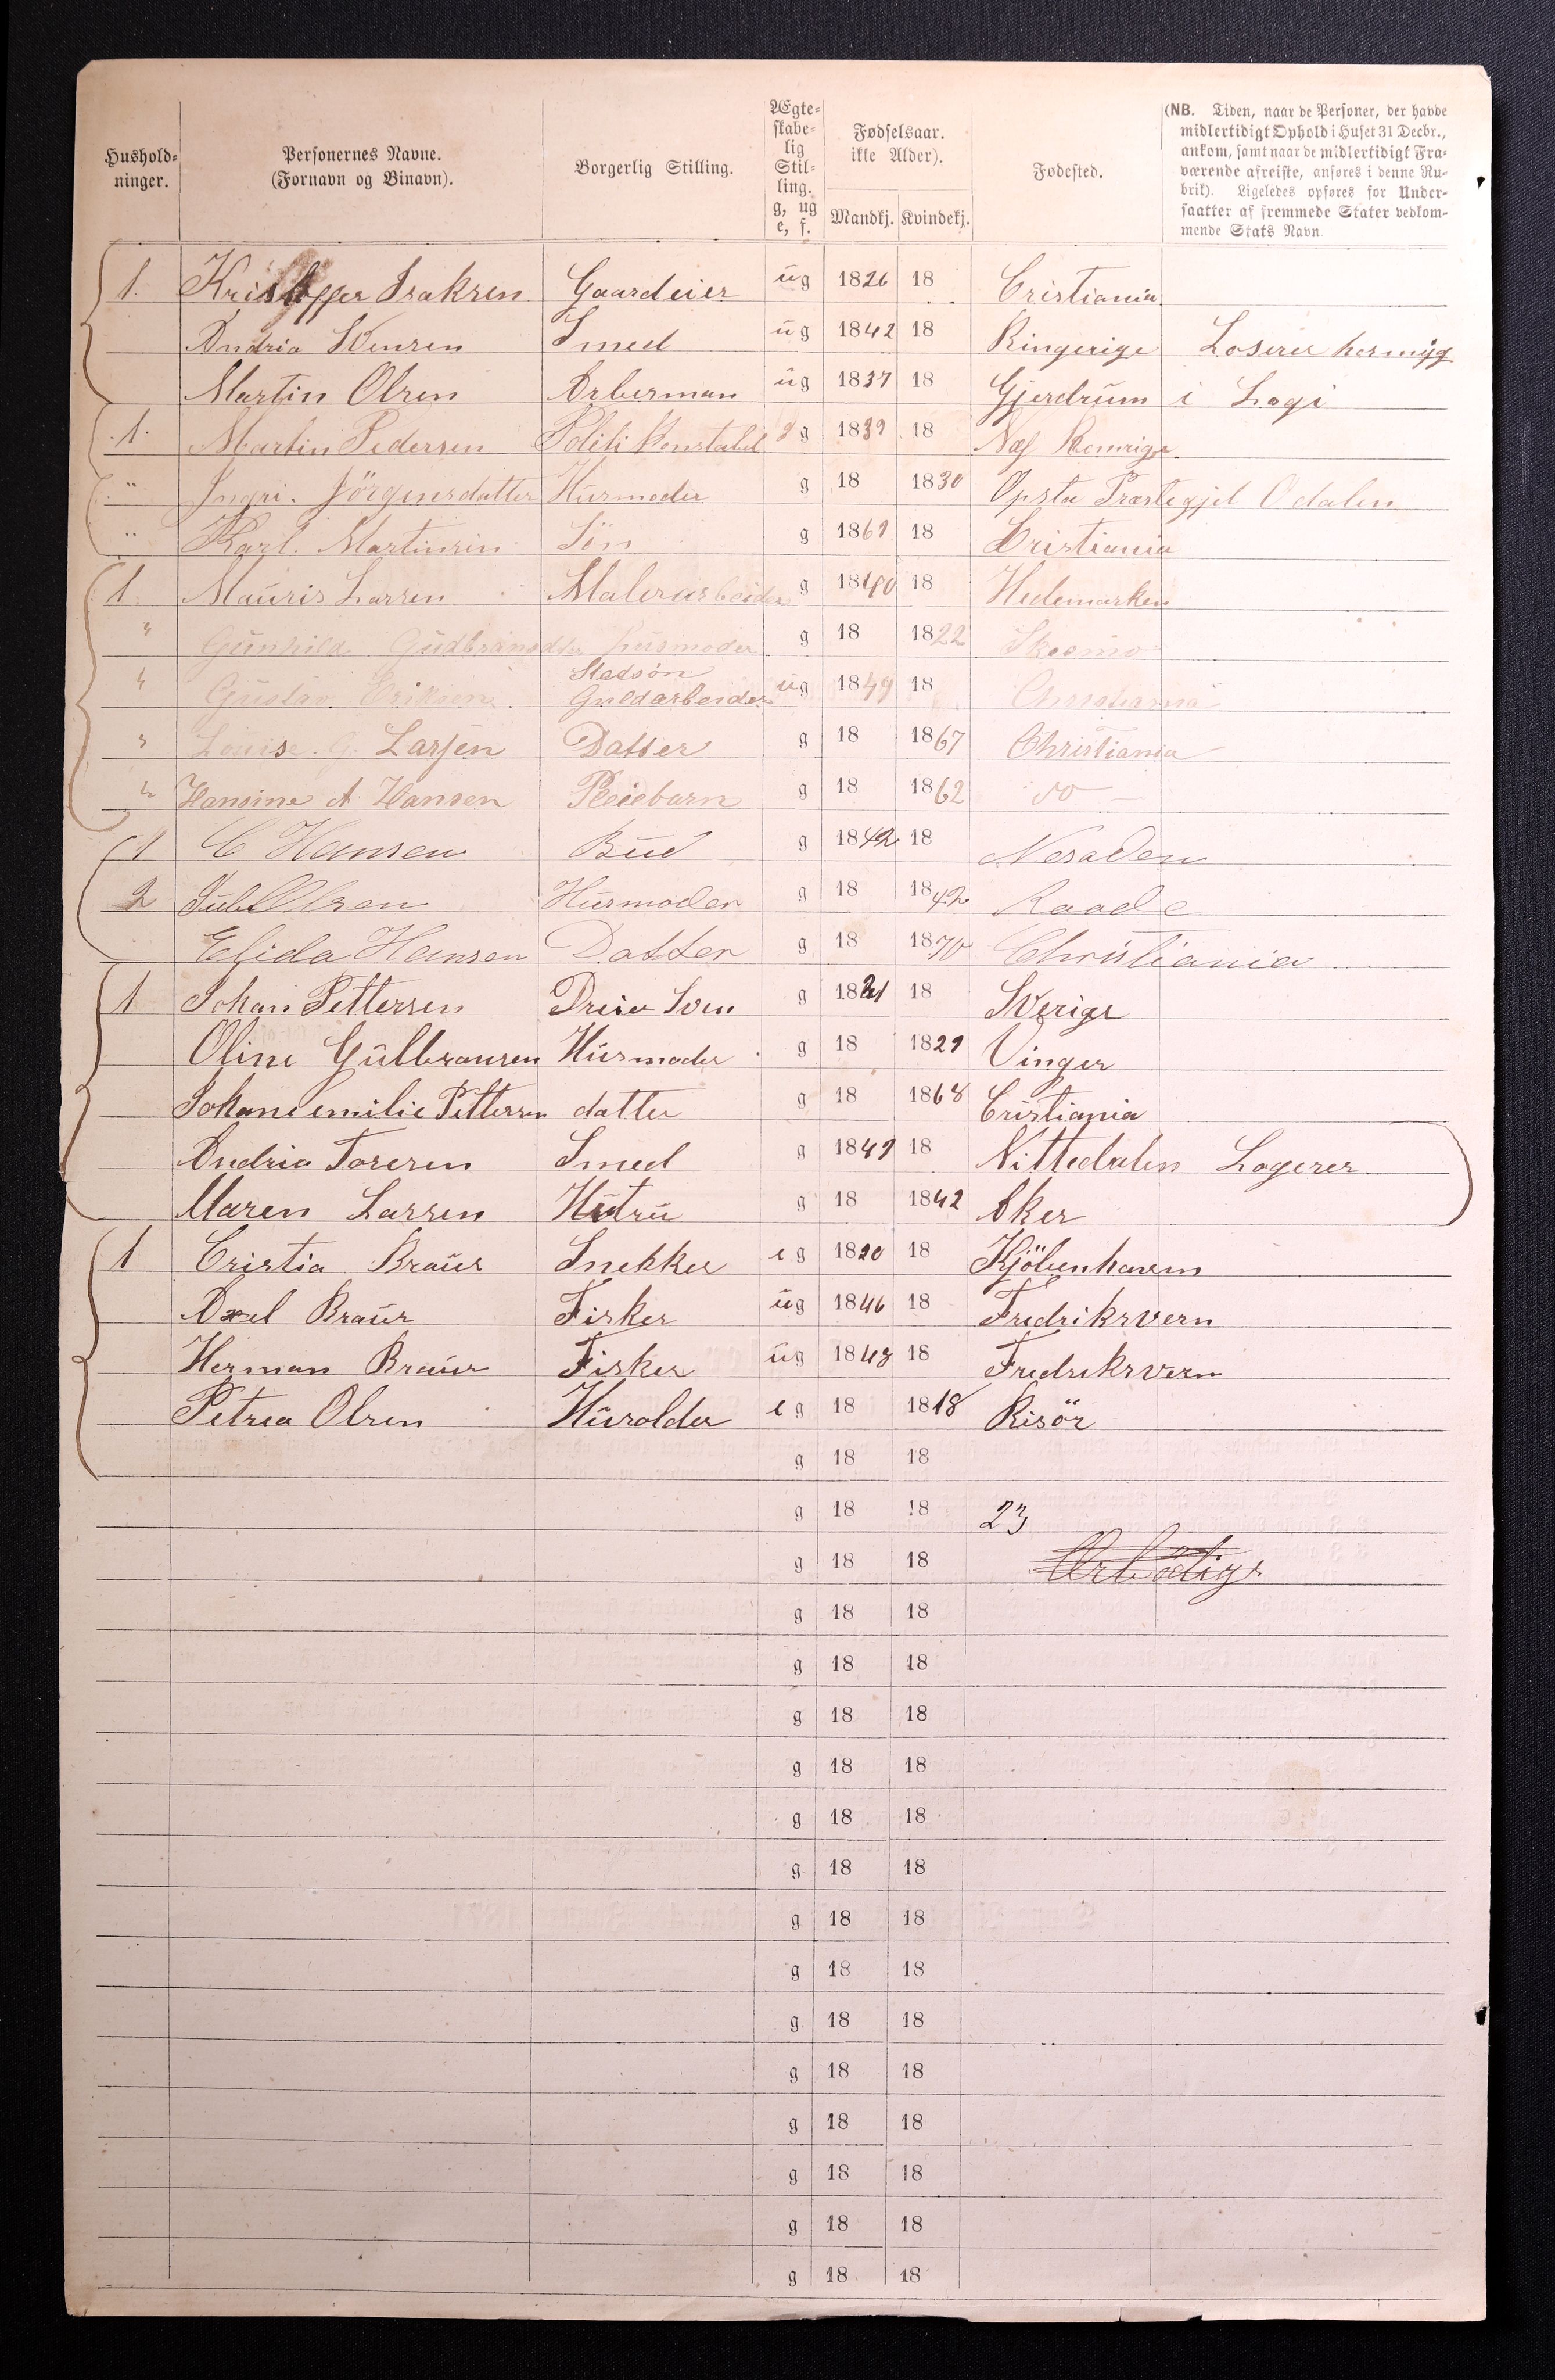 Hushold-
ninger.
Personernes Navne.
(Fornavn og Binavn).
Borgerlig Stilling.
Ægte-
skabe-
lig
Stil-
ling.
g, ug
e, f.
Fødselsaar.
ikke Alder).
Mandkj. Kvindekj.
Fødested.
(NB. Tiden, naar de Personer, der havde
midlertidigt Ophold i Huset 31 Decbr.,
ankom, samt naar de midlertidigt Fra-
værende afreiste, anføres i denne Ru-
brik). Ligeledes opføres for Under-
saatter af fremmede Stater vedkom-
mende Stats Navn.
1. Kristoffer Isaksen Gaardeier ug 1826 18 Cristiania
Andria Smed ug 1842 18 Ringerige Loserer hos myg
Martin Olsen Arberman ug 1837 18 Gjerdrum i Logi
1. Martin Pedersen Politi Konstabel g 1839 18 Næs Romrige
" Ingri. Jörgensdatter Husmoder g 18 1830 Opsta Præstegjel Odalen
" Karl. Martinsin Sön g 1869 18 Cristiania
1 Mauris Larsen Malerarbeider g 1840 18 Hedemarken
" Gunhild Gudbransdtr husmoder g 18 1822 Skeesmo
Stedsøn
" Gustav Eriksen Guldarbeider ug 1849 18 Christiania
" Louise G. Larsen Datter g 18 1867 Christiania
" Hansine A Hansen Pleiebarn g 18 1862 do
1 C Hansen Bud g 1842 18 Nesodden
2 Olsen Husmoder g 18 1842 Raade
Elida Hansen Datter g 18 1870 Christiania
1 Johan Pettersen Dreie Sven g 1821 18 Sverige
Oline Gulbransen Husmoder g 18 1829 Vinger
Johane emilie Pettersen datter g 18 1868 Cristiania
Andria Toresen Smed g 1849 18 Nittedalen Logerer
Maren Larsen Hustru g 18 1842 Aker
1 Cristia Braur Snekker eg 1820 18 Kjöbenhavens
Axel Braur Fisker ug 1846 18 Fredriksvern
Herman Braur Fisker ug 1848 18 Fredriksvern
Petrea Olsen Husolder eg 18 1818 Risör
g 18 18
g 18 18 23
g 18 18 Ærbödigs
g 18 18
g 18 18
g 18 18
g 18 18
g 18 18
g 18 18
g 18 18
g 18 18
g 18 18
g 18 18
g 18 18
g 18 18
g 18 18
g 18 18